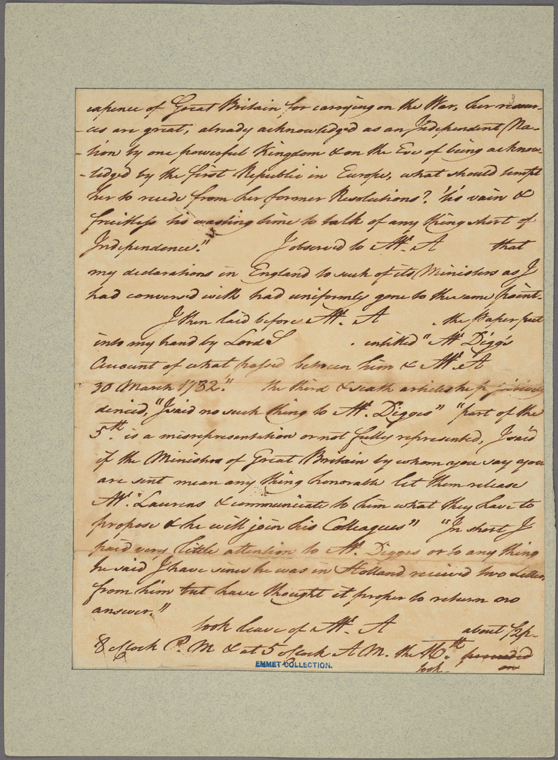 expence of Great Britain for carrying on the War, her resour-
-ces are great, already acknowledged as an Independent Na-
-tion by one powerful Kingdom & on the Eve of being acknow-
-ledged by the first Republic in Europe, what should tempt
her to recede from her former Resolutions? 'tis vain &
fruitless tis wasting time to talk of any thing short of
Independence." I observed to Mr. A that
my declarations in England to such of its Ministers as I
had conversed with had uniformly gone to the same point.
I then laid before Mr. A . the Paper put
into my hand by Lord S . entitled "Mr. Digges
Account of what passed between him & Mr. A
30 March 1782." the third & sixth articles he
denied, "I said no such thing to Mr. Digges" "part of the
5th. is a misrepresentation or not fully represented, I said
if the Ministers of Great Britain by whom you say you
are sent mean any thing honorable let them release
Mr. Laurens & communicate to him what they have to
propose & he will join his Colleagues" "In short I
paid very little attention to Mr. Digges or to any thing
he said I have since he was in Holland received two Letters
from him but have thought it proper to return no
answer."
took leave of Mr. A about ½ p.
8 oClock P. M & at 5 oClock A M. the 16th. proceeded
took on
EMMET COLLECTION.